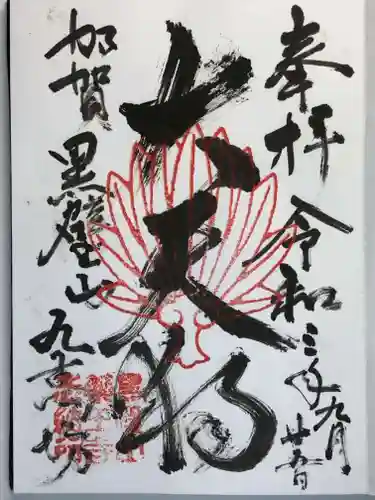 奉拝
令和三年九月
廿五日
大天狗
加賀
黒壁山
九万坊